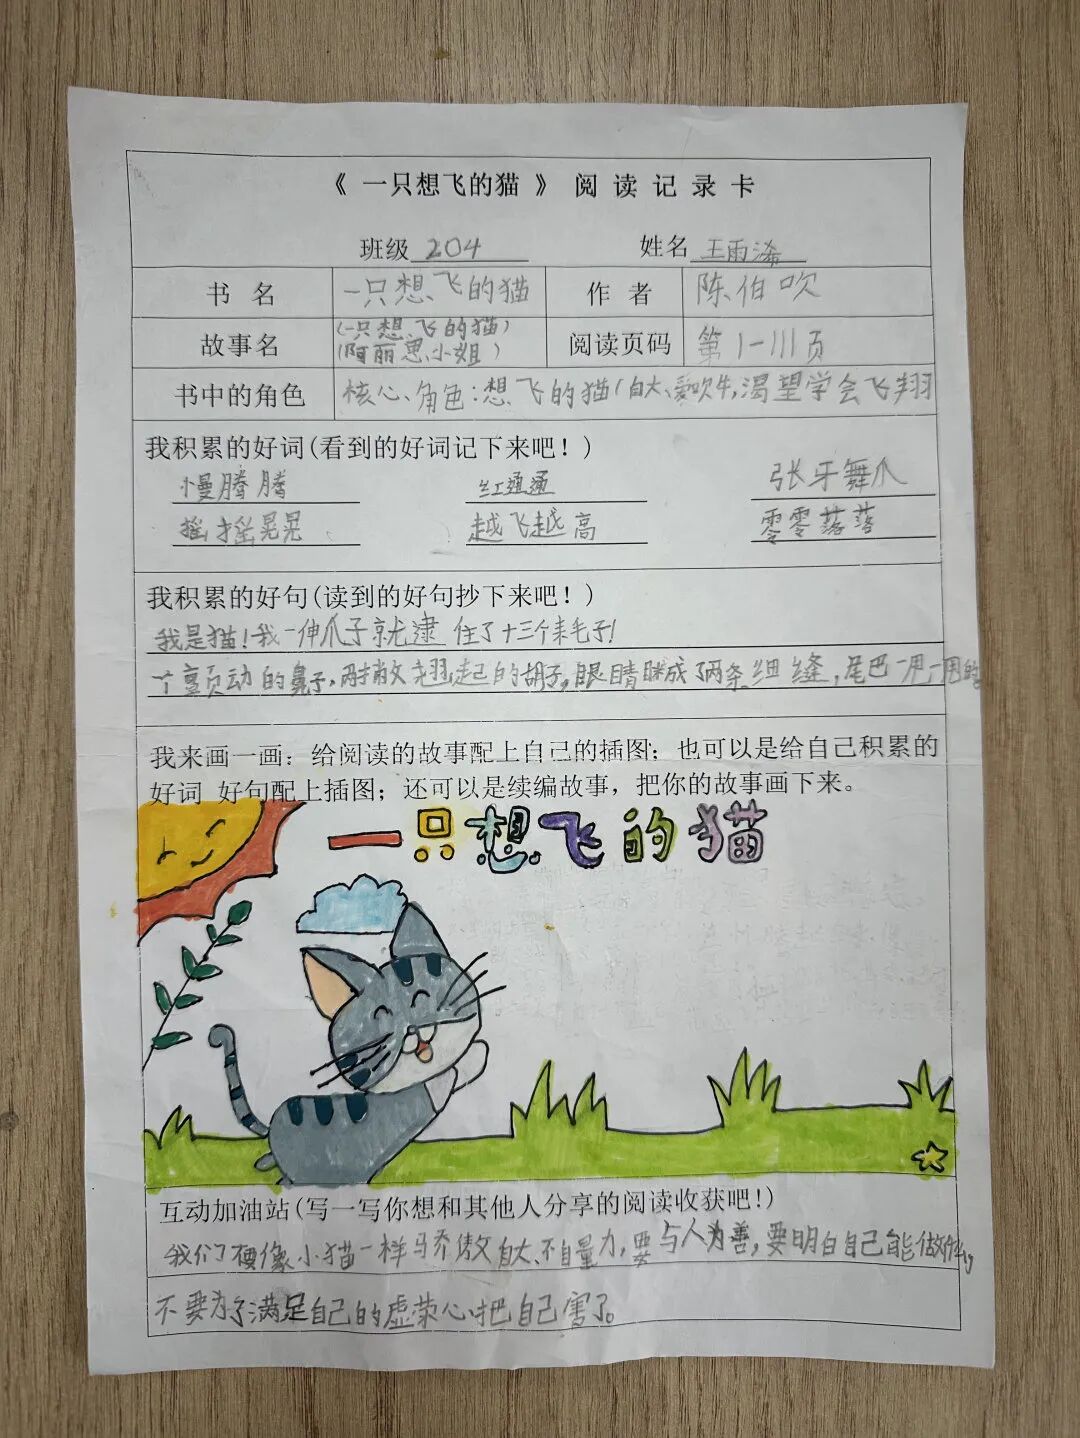 《 一只想飞的猫 》 阅 读 记 录 卡
班级 204 姓名 王雨浠
书 名 一只想飞的猫 作 者 陈伯吹
故事名 (一只想飞的猫) (阿丽思小姐) 阅读页码 第1-111页
书中的角色 核心角色:想飞的猫(自大、爱吹牛,渴望学会飞翔
我积累的好词(看到的好词记下来吧!)
慢腾腾 红通通 张牙舞爪
摇摇晃晃 越飞越高 零零落落
我积累的好句(读到的好句抄下来吧!)
我是猫!我一伸爪子就逮住了十三个耗子!
个 动的鼻子,两撇翘起的胡子,眼睛眯成了两条细缝,尾巴一甩一甩的
我来画一画:给阅读的故事配上自己的插图;也可以是给自己积累的
好词 好句配上插图;还可以是续编故事,把你的故事画下来。
一只想飞的猫
互动加油站(写一写你想和其他人分享的阅读收获吧!)
我们 像小猫一样骄傲自大、不自量力,要与人为善,要明白自己能做什么
不要为了满足自己的虚荣心把自己害了。